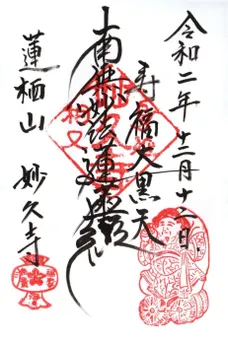 令和二年十二月十二日
寿福大黒天
南無妙法蓮華経
蓮栖山 妙久寺